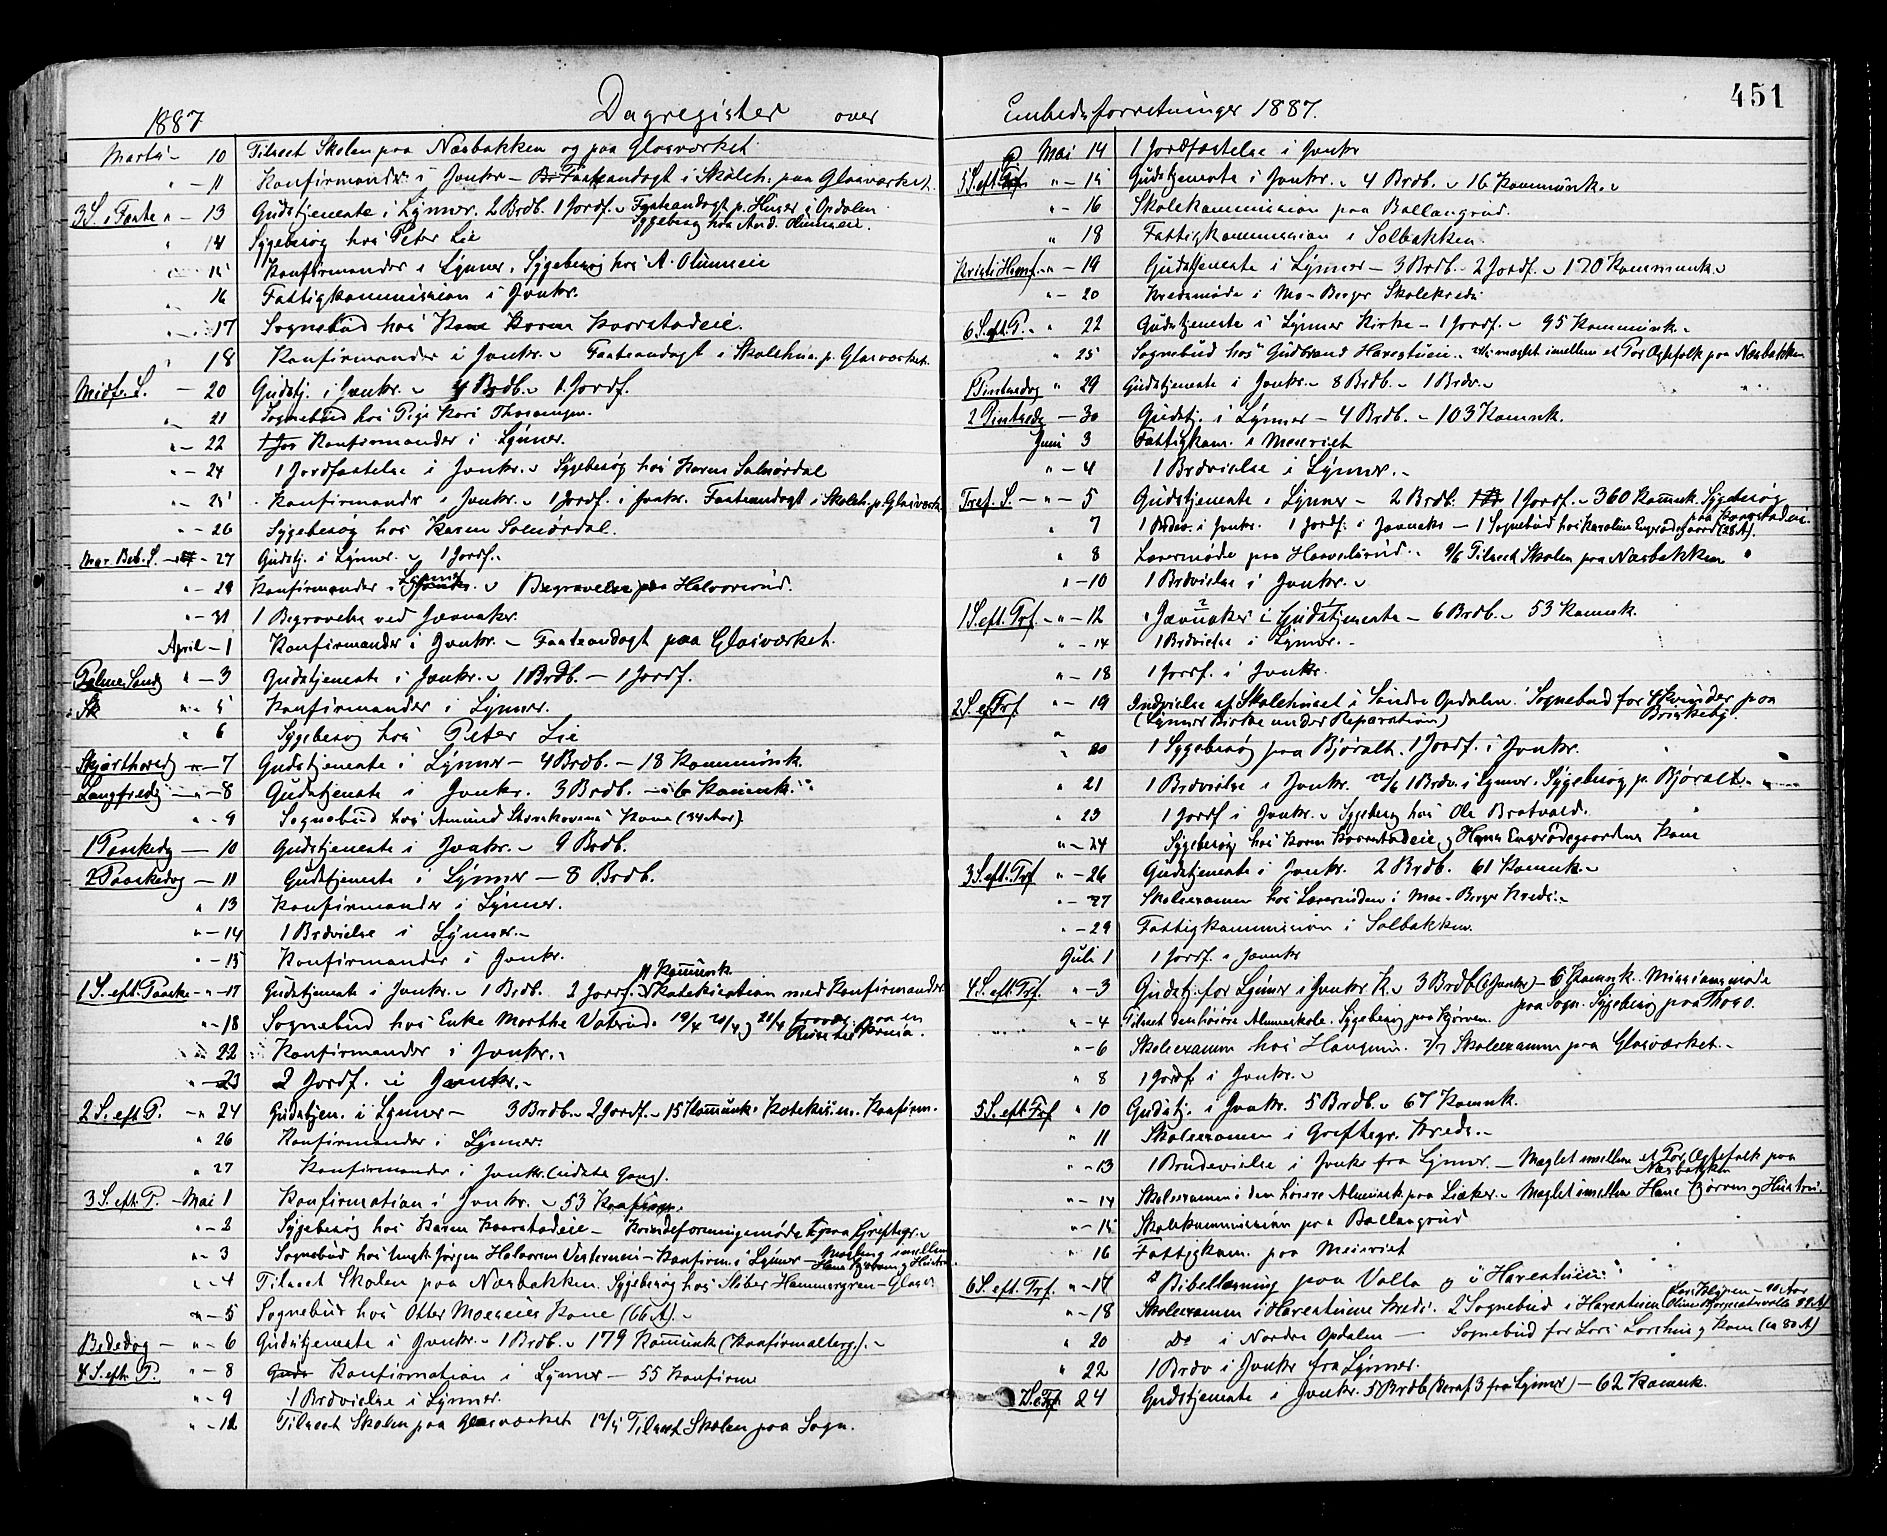 451
1887 Dagregister over
Marts - 10 Tilseet Skolen paa Næsbakken og paa Glasværket
" - 11 Konfirmander i Jvnkr - Fasteandagt i Skoleh. paa Glasværket.
3 S. i Faste " - 13 Gudstjeneste i Lÿnner. 2 Brdb. 1 Jordf. - Fasteandagt p. Huser i Opdalen. Sygebesøg hos And. Olimseie.
" 14 Sygebesøg hos Peter Lie
15 Konfirmander i Lÿnner. Sygebesøg hos A. Olimseie
16 Fattigkommission i Jvnkr.
" 17 Sognebud hos Kone Karen Kaarstadeie.
" 18 Konfirmander i Jvnkr. - Fasteandagt i Skolehus. p. Glasværket.
Midf. S. - 20 Gudstj. i Jvnkr. - 4 Brdb. - 1 Jordf.
" 21 Sognebud hos Pige Kari
" - 22 Konfirmander i Lÿnner.
" - 24 1 Jordfæstelse i Jvnkr. - Sygebesøg hos Karen Solnørdal
" - 25 Konfirmandr i Jvnkr. - 1 Jordf. i Jvnkr. Fasteandagt i Skoleh. p. Glasværk.
" - 26 Sygebesøg hos Karen Solnørdal.
Mar. Beb. S. - 27 Gudstj. i Lynner. - 1 Jordf.
" - 29 Konfirmander i Lynner - Begravelse paa Halvorsrud.
" - 31 1 Begravelse ved Jævnaker.
April - 1 Konfirmander i Jvnkr. - Fasteandagt paa Glasværket.
Palme Sønd " - 3 Gudstjeneste i Jvnkr. - 1 Brdb. - 1 Jordf.
Sk " - 5 Konfirmander i Lynner.
" 6 Sygebesøg hos Peter Lie
Skjærthorsd - 7 Gudstjeneste i Lÿnner - 4 Brdb. - 18 Kommunk.
Langfredg - " - 8 Gudstjeneste i Jvnkr. 3 Brdb. - 6 Komunk.
" - 9 Sognebud hos Amund Kone (34 Aar).
1 Paaskedg - 10 Gudstjeneste i Jvnkr. - 9 Brdb.
2 Paaskedag - 11 Gudstjeneste i Lÿnner - 8 Brdb.
" 13 Konfirmander i Lÿnner.
" - 14 1 Brdvielse i Lÿnner. -
" - 15 Konfirmander i Jvnkr.
1 S. eft. Paaske - " - 17 Gudstjeneste i Jvnkr. - 1 Brdb. 2 Jordf. Kommunk Katekisation med Konfirmander
" - 18 Sognebud hos Enke Marthe Vaterud. 19/4 20/4 og 21/4 fravær. paa en Reise til
22 Konfirmander i Jvnkr. -
" - 23 2 Jordf. i Jvnkr. -
2 S. eft. P. - " 24 Gudstjen. i Lynner - 3 Brdb. - 2 Jordf. - 15 Kommunk. Katekis. m. Konfirm.
" 26 Konfirmander i Lÿnner.
" 27 Konfirmander i Jvnkr. (sidste Gang).
3 S. eft. P. - Mai 1 Konfirmation i Jvnkr. - 53 Konfirm.
" - 2 Sÿgebesøg hos Karen Kaarstadeie - Kvindeforeningsmøde paa Grefsgr. -
" - 3 Sognebud hos Jørgen Halvorsen Vesterneie - Konfirm. i Lÿnner - Mægling imellem Hans Kjørven og Hustru
" - 4 Tilseet Skolen paa Næsbakken. Sÿgebesøg hos Sliber Hammergren - Glasv.
" - 5 Sognebud hos Otter Moeseies Kone (66 A). -
Bededag - " - 6 Gudstjeneste i Jvnkr. - 1 Brdb. - 179 Komunk (Konfirmalterg.). -
4 S. eft. P. " - 8 Konfirmation i Lynner - 55 Konfirm
" - 9 1 Brdvielse i Lynner.
" - 11 Tilseet Skolen paa Glasværket 12/5 Tilseet Skolen paa Sogn.
Embedsforretninger 1887.
Mai 14 1 Jordfæstelse i Jvnkr
5 S. eft. P. " - 15 Gudstjeneste i Jvnkr. - 4 Brdb. - 16 Kommunk. -
" - 16 Skolekommission paa Ballangrud.
" 18 Fattigkommission i Solbakken.
Kristi Himf. - " - 19 Gudstjeneste i Lÿnner - 3 Brdb. - 2 Jordf. - 170 Kommunk. -
" - 20 Kredsmøde i Mo-Berger Skolekreds
6 S. eft. P. - " 22 Gudstjeneste i Lÿnner Kirke - 1 Jordf. - 95 Kommunk. -
" 25 Sognebud hos Gudbrand Harestueie. - mæglet imellem et Par Ægtefolk paa Næsbakken
1 Pintsedag " 29 Gudstjeneste i Jvnkr. - 8 Brdb. - 1 Brdv. -
2 Pintsedg - 30 Gudstj. i Lÿnner - 4 Brdb. - 103 Komnk.
Juni 3 Fattigkom. i Meieriet
" - 4 1 Brdvielse i Lÿnner. -
Tref. S. - " - 5 Gudstjeneste i Lynner - 2 Brdb. 1 Jordf. - 360 Komunk. Sygebesøg paa Kaarstadeie.
" 7 1 Brdv. i Jvnkr. 1 Jordf. i Jævnakr - 1 Sognebud hos Karoline (28 A).
" 8 Lærermøde paa - 9/6 Tilseet Skolen paa Næsbakken
" - 10 1 Brdvielse i Jvnkr. -
1 S. eft. Trf. - " - 12 Jævnaker i Gudstjeneste - 6 Brdb. - 53 Komnk.
" - 14 1 Brdvielse i Lÿnner. -
" - 18 1 Jordf. i Jvnkr.
2 S. ef. Trf. " - 19 Indvielse af Skolehuset i Søndre Opdalen. Sognebud for Kvinder paa Briskebÿ.
(Lÿnner Kirke under Reparation)
" 20 1 Sygebesøg paa Bjøralt. 1 Jordf. i Jvnkr.
" 21 1 Brdvielse i Jvnkr. 22/6 1 Brdv. i Lynner. Sÿgebesøg p. Bjøralt.
" 23 1 Jordf i Jvnkr. - Sygebesøg hos Ole Bratvold.
" - 24 Sygebesøg hos Karen Kaarstadeie og Hans Engnødegaardens Kone
3 S. eft. Trf " - 26 Gudstjeneste i Jvnkr. 2 Brdb. 61 Komunk. -
" - 27 Skoleexamen hos i Moe-Berger Kreds. -
" - 29 Fattigkommission i Solbakken.
Juli 1 1 Jordf. i Jævnkr
4 S. eft Trf. " - 3 Gudstj. for Lynner i Jvnkr K. - 3 Brdb (Jvnkr) - 6 Komnk. Missionsmøde paa Sogn. Sygebesøg paa
" - 4 Tilseet den høiere Almueskole. Sÿgebesøg paa Kjørven.
" - 6 Skoleexamen hos Haugnes. 7/7 Skoleexamen paa Glasværket. -
" 8 1 Jordf. i Jvnkr. -
5 S. eft Trf " 10 Gudstj. i Jvnkr. 5 Brdb. - 67 Komnk.
" 11 Skoleexamen i Greftsgr. Kreds. -
" - 13 1 Brudevielse i Jvnkr fra Lynner. - Mæglet imellem et Par Ægtefolk paa Næsbakken
" - 14 Skoleexamen i den høiere Almuesk. paa Lisker. - Mæglet imellem Hans Kjørven og Hustru.
" - 15 Skolekommission paa Ballangrud
" 16 Fattigkom. paa Meieriet
6 S. eft. Trf. " - 17 Bibellæsning paa Volla og i Harestuen.
" - 18 Skoleexamen i Harestuens Kreds. 2 Sognebud i Harestuen
" 20 Do i Nordre Opdalen - Sognebud for Lars Kone (ca 80 A)
" 22 1 Brdv i Jvnkr fra Lÿnner.
24 Gudstjeneste i Jvnkr. 5 Brdb (deraf 3 fra Lynner) - 62 Komnk.